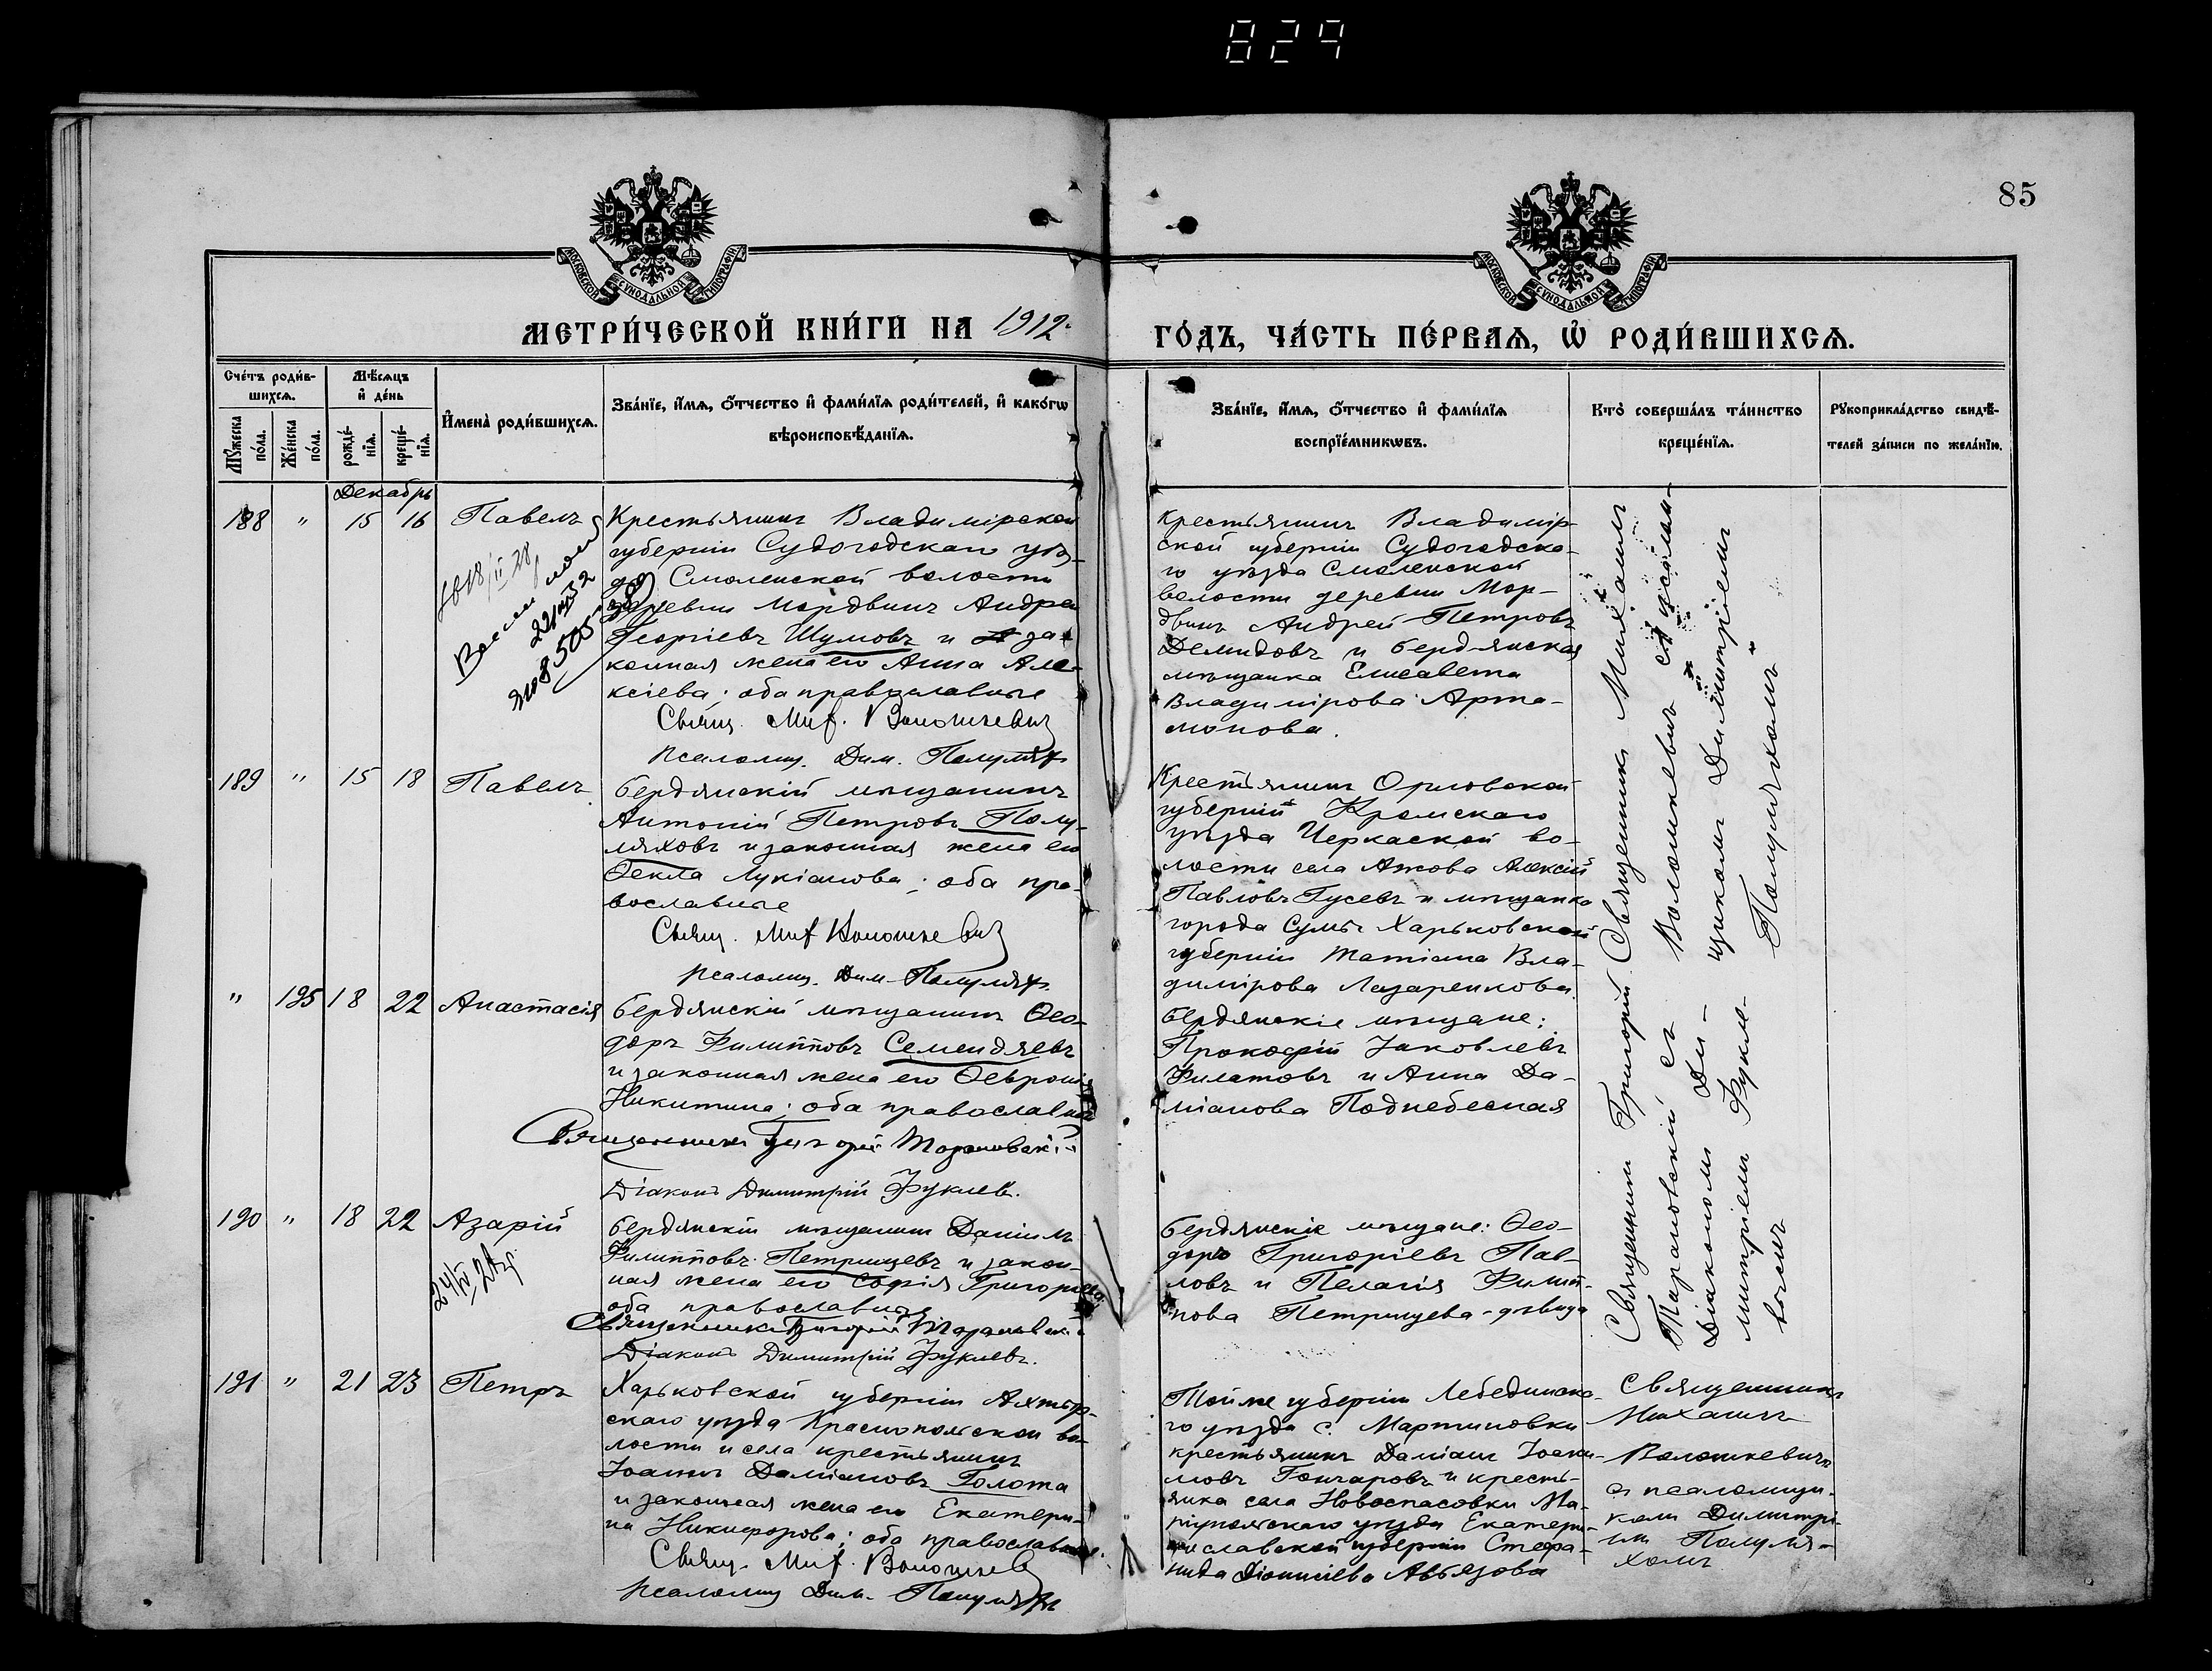 829
85
МОСКОВСКОЙ СѴНОДАЛЬНОЙ ТИПОГРАФІИ
МОСКОВСКОЙ СѴНОДАЛЬНОЙ ТИПОГРАФІИ
МЕТРИ́ЧЕСКОЙ КНИ́ГИ НА 1912
ГО́ДЪ, ЧА́СТЬ ПЕ́РВАѦ, Ѡ҆ РОДИ́ВШИХСѦ.
Счéтъ роди́в-
шихсѧ.
Мꙋ́жеска по́ла.
Же́нска по́ла.
Мѣ́сѧцъ и҆ де́нь
рожде́-
нїѧ.
креще́-
нїѧ.
И҆мена̀ роди́вшихсѧ.
Зва́нїе, и҆́мѧ, ѻ҆́тчество и҆ фами́лїѧ роди́телей, и҆ како́гѡ
вѣроисповѣ́данїѧ.
Зва́нїе, и҆́мѧ, ѻ҆́тчество и҆ фами́лїѧ
воспрїе́мникѡвъ.
Кто̀ соверша́лъ та́инство
креще́нїѧ.
Рꙋкоприкла́дство свидѣ́-
телей за́писи по жела́нїю.
Декабрь
188 " 15 16 Павелъ
Крестьянинъ Владимірской
губерніи Судогодскаго уѣз-
да Смоленской волости
деревни Мордвинъ Андрей
Георгіевъ Шумовъ и за-
конная жена его Анна Але-
ксіева; оба православные
Свящ. Мих. Волошкевич
Псаломщ. Дим. Полулях
Крестьянинъ Владимір-
ской губерніи Судогодска-
го уѣзда Смоленской
волости деревни Мор-
двинъ Андрей Петровъ
Демидовъ и бердянская
мѣщанка Елисавета
Владимірова Арта-
монова.
Священникъ Михаилъ
Волошкевичъ съ псалом-
щикомъ Димитріемъ
Полуляхомъ
189 " 15 18 Павелъ
Бердянскій мѣщанинъ
Антоній Петровъ Полу-
ляховъ и законная жена его
Ѳекла Лукіанова; оба пра-
вославные
Свящ. Мих Волошкевич
Псаломщ. Дим. Полулях.
Крестьянинъ Орловской
губерніи Кромскаго
уѣзда Черкаской во-
лости села Ажова Алексій
Павловъ Гусевъ и мѣщанка
города Сумъ Харьковской
губерніи Татіана Вла-
димірова Лазаренкова.
" 195 18 22 Анастасія
Бердянскій мѣщанинъ Ѳео-
доръ Филипповъ Семендяевъ
и законная жена его Ѳевронія
Никитина; оба православные
Священникъ Григорій Тарановскій
Діаконъ Димитрій Фукиев.
Бердянскіе мѣщане:
Прокофій Іаковлевъ
Филатовъ и Анна Да-
міанова Поднебесная
Священникъ Григорій
Тарановскій съ
Діакономъ Ди-
митріемъ Фукие-
вымъ
190 " 18 22 Азарій
Бердянскій мѣщанинъ Даніилъ
Филипповъ Петрищевъ и закон-
ная жена его Софія Григорьева
оба православные
Священникъ Григорій Тарановскій
Діаконъ Димитрій Фукиевъ.
Бердянскіе мѣщане: Ѳео-
доръ Григоріевъ Пав-
ловъ и Пелагія Филип-
пова Петрищева-дѣвица
191 " 21 23 Петръ
Харьковской губерніи Ахтыр-
скаго уѣзда Краснопольской во-
лости и села крестьянинъ
Іоаннъ Даміановъ Голота
и законная жена его Екатери-
на Никифорова; оба православные.
Свящ. Мих. Волошкев
Псаломщ Дим. Полулях
Той же губерніи Лебединска-
го уѣзда с. Мартиновки
крестьянинъ Даміанъ Іоакимовъ Гончаровъ и кресть-
янка села Новоспасовки Ма-
ріупольскаго уѣзда Екатери-
нославской губерніи Стефа-
нида Діонисіева Авъязова
Священникъ
Михаилъ
Волошкевичъ
съ псаломщи-
комъ Димитрі-
емъ Полуля-
хомъ